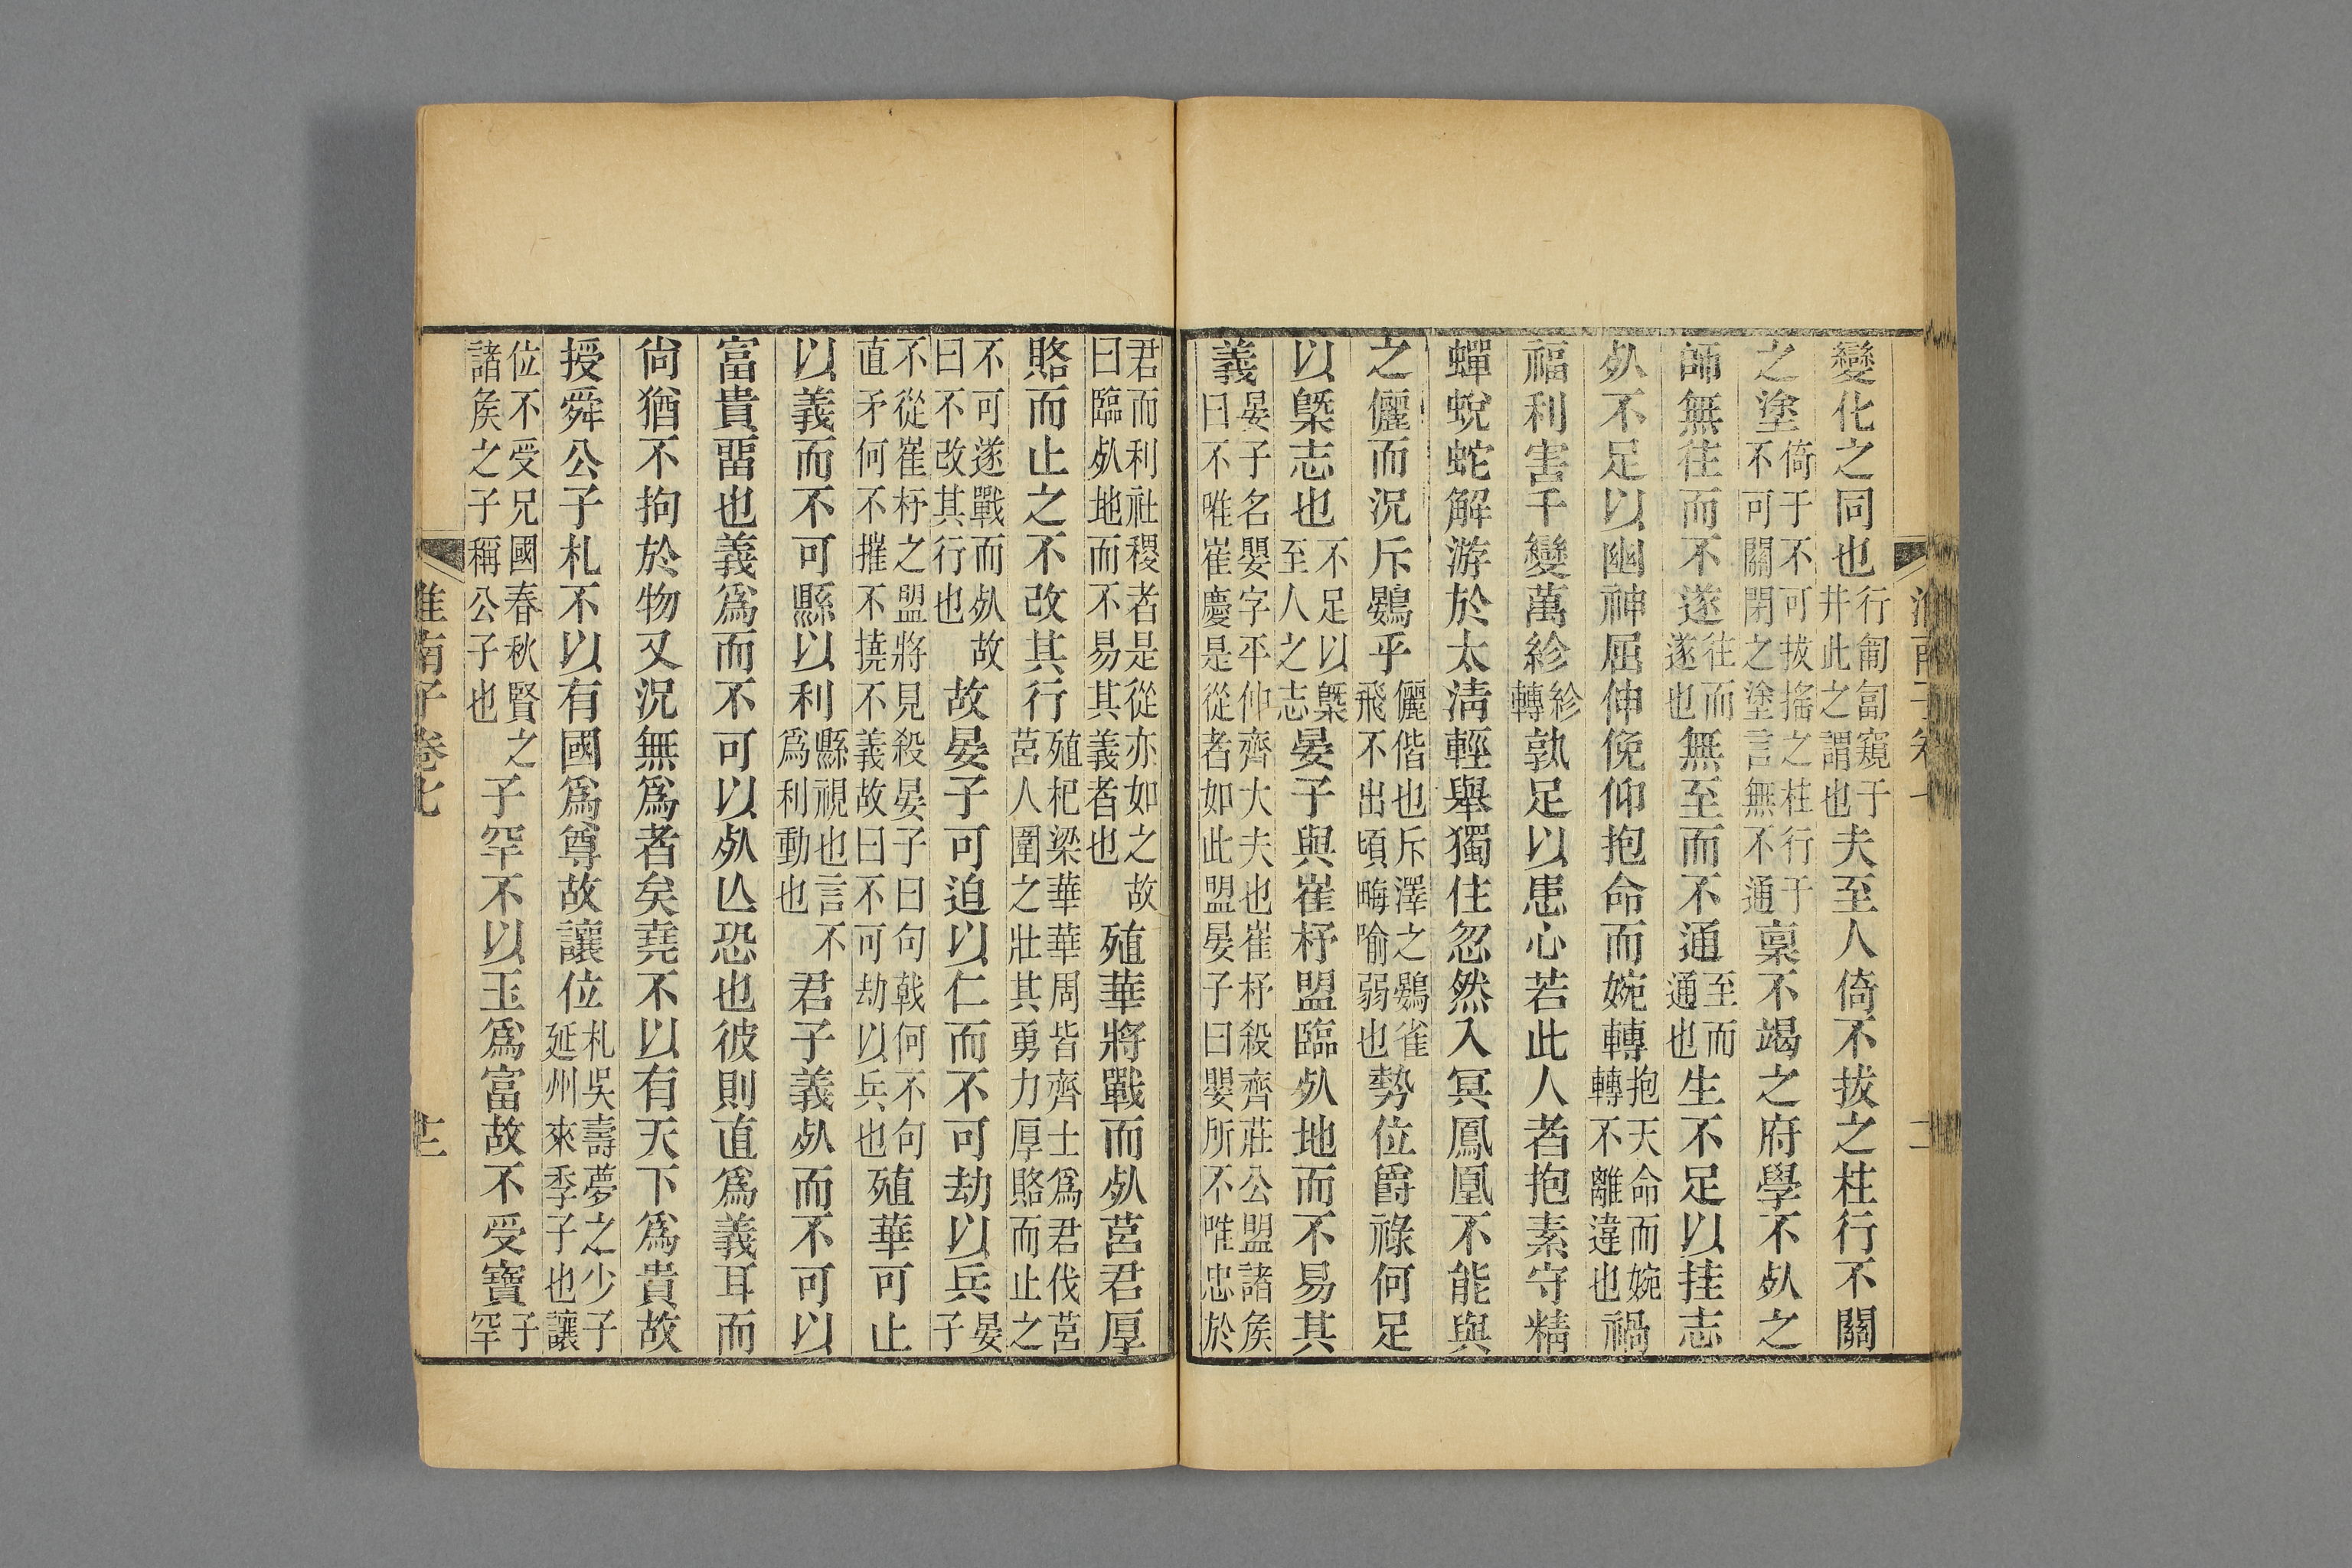 變化之同也行匍匐窺于井此之謂也夫至人倚不拔之柱行不關
之塗倚于不可拔搖之柱行于不可關閉之塗言無不通稟不竭之府學不㱙之
師無往而不遂往而遂也無至而不通至而通也生不足以挂志
㱙不足以幽神屈伸俛仰抱命而婉轉抱天命而婉轉不離違也禍
福利害千變萬紾紾轉孰足以患心若此人者抱素守精
蟬蛻蛇解游於太清輕舉獨住忽然入冥鳳凰不能與
之儷而況斥鷃乎儷偕也斥澤之鷃雀飛不出頃畮喻弱也勢位爵祿何足
以槩志也不足以槩至人之志晏子與崔杼盟臨㱙地而不易其
義晏子名嬰字平仲齊大夫也崔杼殺齊莊公盟諸矦曰不唯崔慶是從者如此盟晏子曰嬰所不唯忠於
君而利社稷者是從亦如之故曰臨㱙地而不易其義者也殖華將戰而㱙莒君厚
賂而止之不改其行殖杞梁華華周皆齊士爲君伐莒莒人圍之壯其勇力厚賂而止之
不可遂戰而㱙故曰不改其行也故晏子可迫以仁而不可劫以兵晏子
不從崔杼之盟將見殺晏子曰句戟何不句直矛何不摧不撓不義故曰不可劫以兵也殖華可止
以義而不可縣以利縣視也言不爲利動也君子義㱙而不可以
富貴畱也義爲而不可以㱙亾恐也彼則直爲義耳而
尙猶不拘於物又況無爲者矣堯不以有天下爲貴故
授舜公子札不以有國爲尊故讓位札吳壽夢之少子延州來季子也讓
位不受兄國春秋賢之諸矦之子稱公子也子罕不以玉爲富故不受寶子罕
淮南子卷七